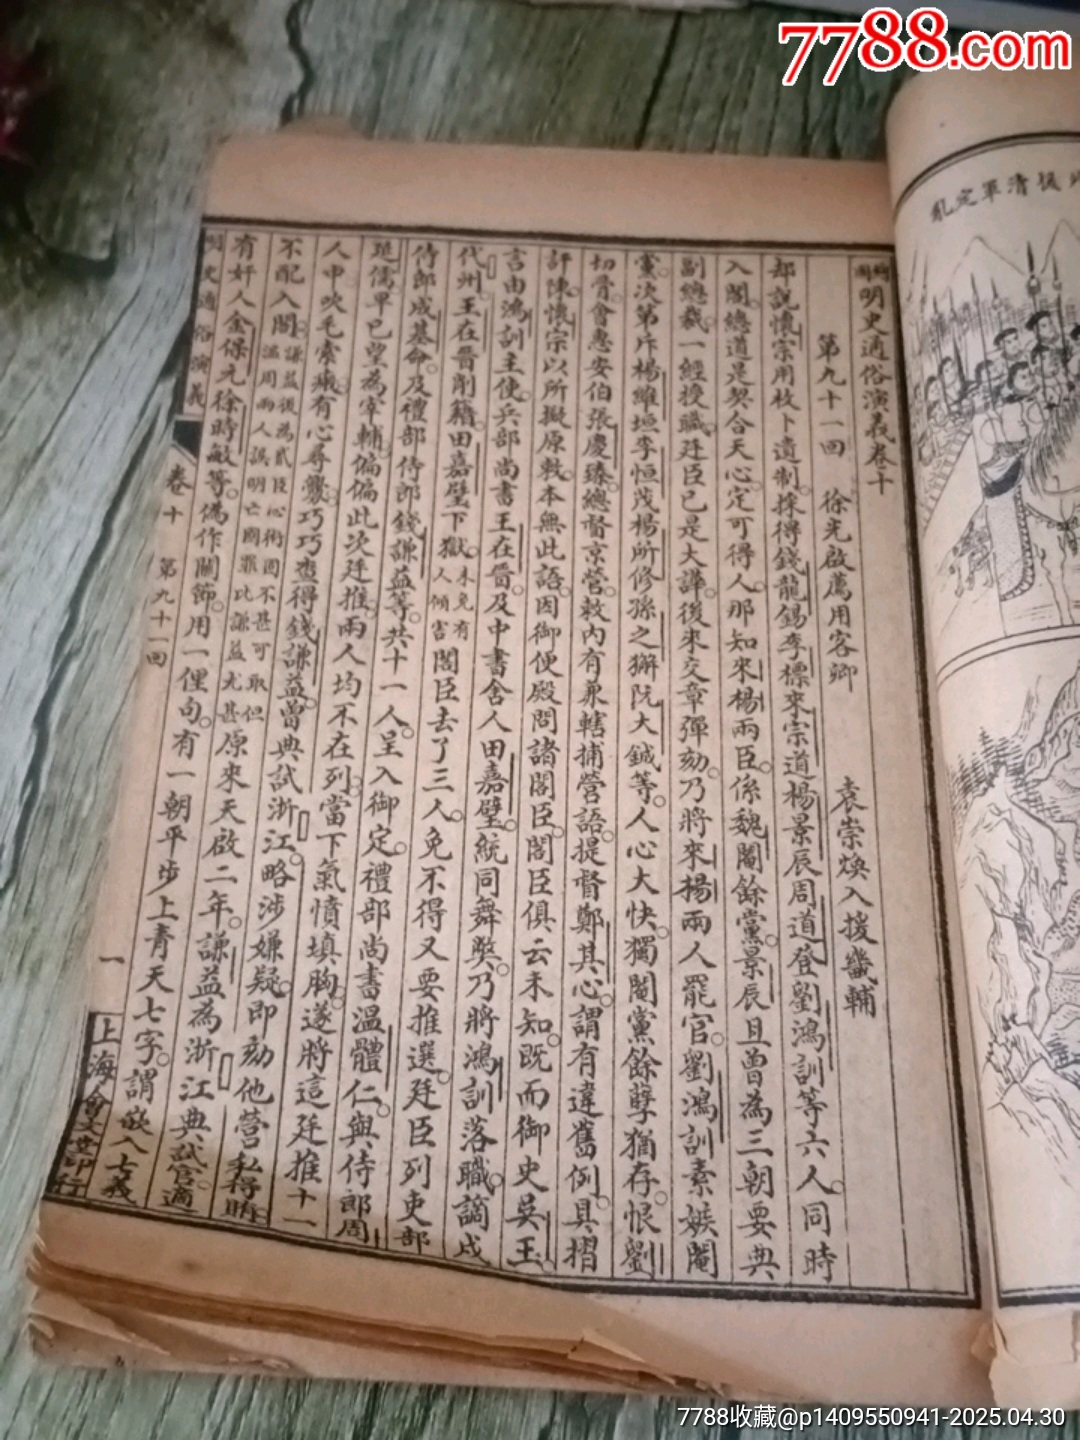 7788.com
此援清軍定亂
繡圖明史通俗演義卷十
第九十一回 徐光啟薦用客卿 袁崇煥入援畿輔
却說懷宗用枚卜遺制採得錢龍錫李標來宗道楊景辰周道登劉鴻訓等六人同時
入閣總道是契合天心定可得人那知來楊兩臣係魏閹餘黨景辰且曾為三朝要典
副總裁一經授職廷臣已是大譁後來交章彈劾乃將來楊兩人罷官劉鴻訓素嫉閹
黨次第斥楊維垣李恒茂楊所修孫之獬阮大鋮等人心大快獨閹黨餘孽猶存恨劉
切骨會惠安伯張慶臻總督京營敕內有兼轄捕營語提督鄭其心謂有違舊例具摺
評陳懷宗以所擬原敕本無此語因御便殿問諸閣臣閣臣俱云未知既而御史吳玉
言由鴻訓主使兵部尚書王在晉及中書舍人田嘉璧統同舞弊乃將鴻訓落職謫戍
代州王在晉削籍田嘉璧下獄未免有人傾害閣臣去了三人免不得又要推選廷臣列吏部
侍郎成基命及禮部侍郎錢謙益等共十一人呈入御定禮部尚書溫體仁與侍郎周
延儒早已望為宰輔偏偏此次廷推兩人均不在列當下氣憤填胸遂將這廷推十一
人中吹毛索瘢有心尋釁巧巧查得錢謙益曾典試浙江略涉嫌疑即劾他營私得賄
不配入閣謙益後為貳臣心術固不甚可取但溫周兩人誤明亡國罪比謙益尤甚原來天啟二年謙益為浙江典試官適
有奸人金保元徐時敏等偽作關節用一俚句有一朝平步上青天七字謂嵌入七義
明史通俗演義 卷十 第九十一回 一 上海會文堂印行
7788收藏@p1409550941-2025.04.30